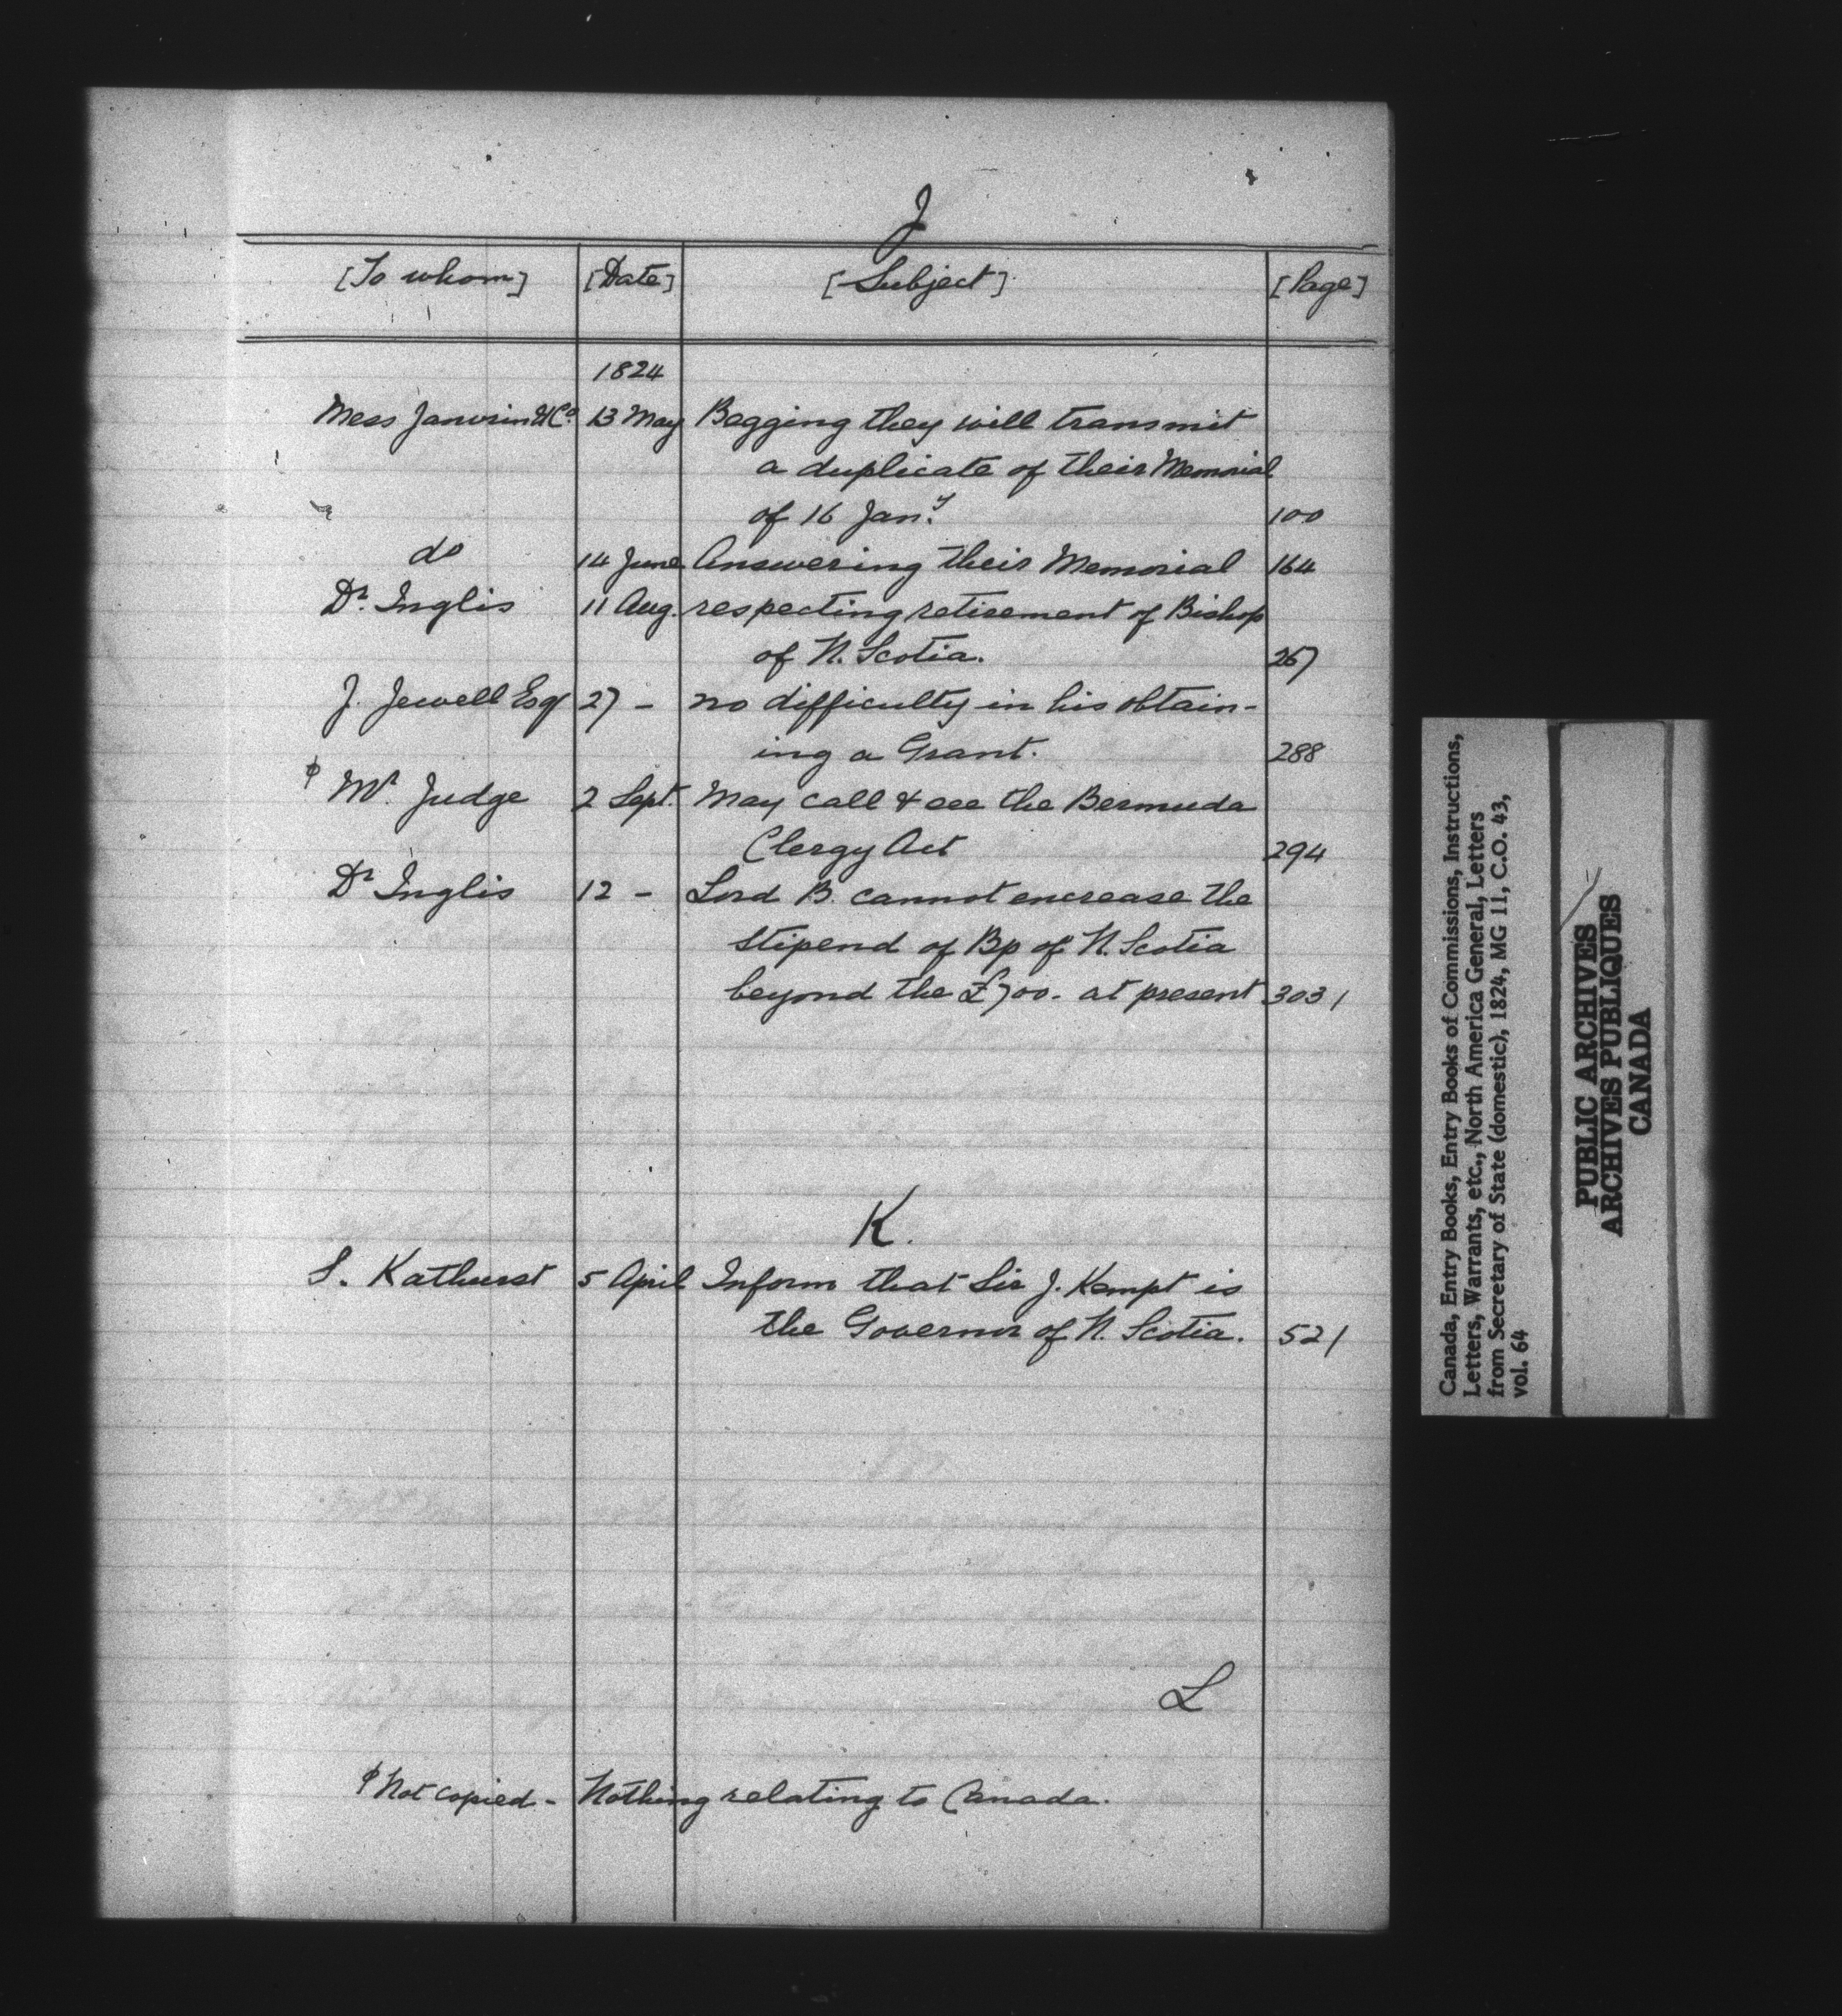 J
[To whom] [Date] [Subject] [Page]
1824
Mess Janvrin & Co. 13 May Begging they will transmit
a duplicate of their Memorial
of 16 Jany. 100
do 14 June Answering their Memorial 164
Dr. Inglis 11 Aug. respecting retirement of Bishop
of N. Scotia. 267
J. Jewell Esq 27 - no difficulty in his obtain-
ing a Grant. 288
φ Mr. Judge 2 Sept. May call & see the Bermuda
Clergy Act 294
Dr Inglis 12 - Lord B. cannot encrease the
stipend of Bp of N. Scotia
beyond the £700. at present 303/
K.
S. Kathurst 5 April Inform that Sir J. Kempt is
the Governor of N. Scotia. 52/
L
φ Not copied - Nothing relating to Canada.
Canada, Entry Books, Entry Books of Commissions, Instructions,
Letters, Warrants, etc., North America General, Letters
from Secretary of State (domestic), 1824, MG 11, C.O. 43,
vol. 64
PUBLIC ARCHIVES
ARCHIVES PUBLIQUES
CANADA